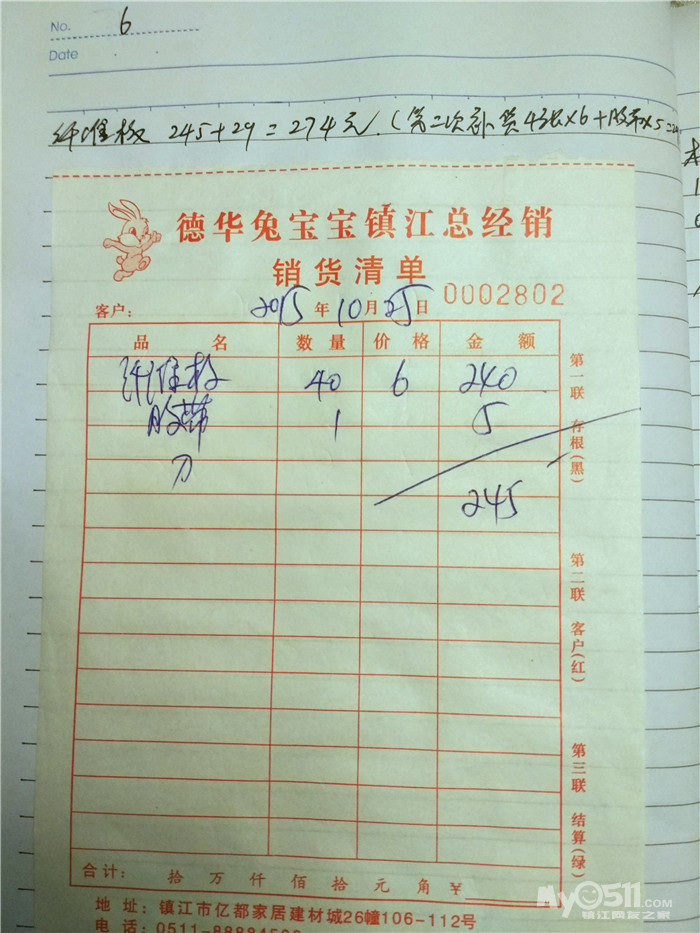 No. 6
Date
纤维板 245+29=274元.(第二次补货4张×6+胶带×5=
德华兔宝宝镇江总经销
销货清单
客户: 2015年10月25日 0002802
品名 数量 价格 金额
纤维板 40 6 240
胶带 1 5
刀
245
第一联 存根(黑)
第二联 客户(红)
第三联 结算(绿)
合计: 拾万仟佰拾元角¥
地址:镇江市亿都家居建材城26幢106-112号
电话:0511-88884
My0511.com
镇江网友之家